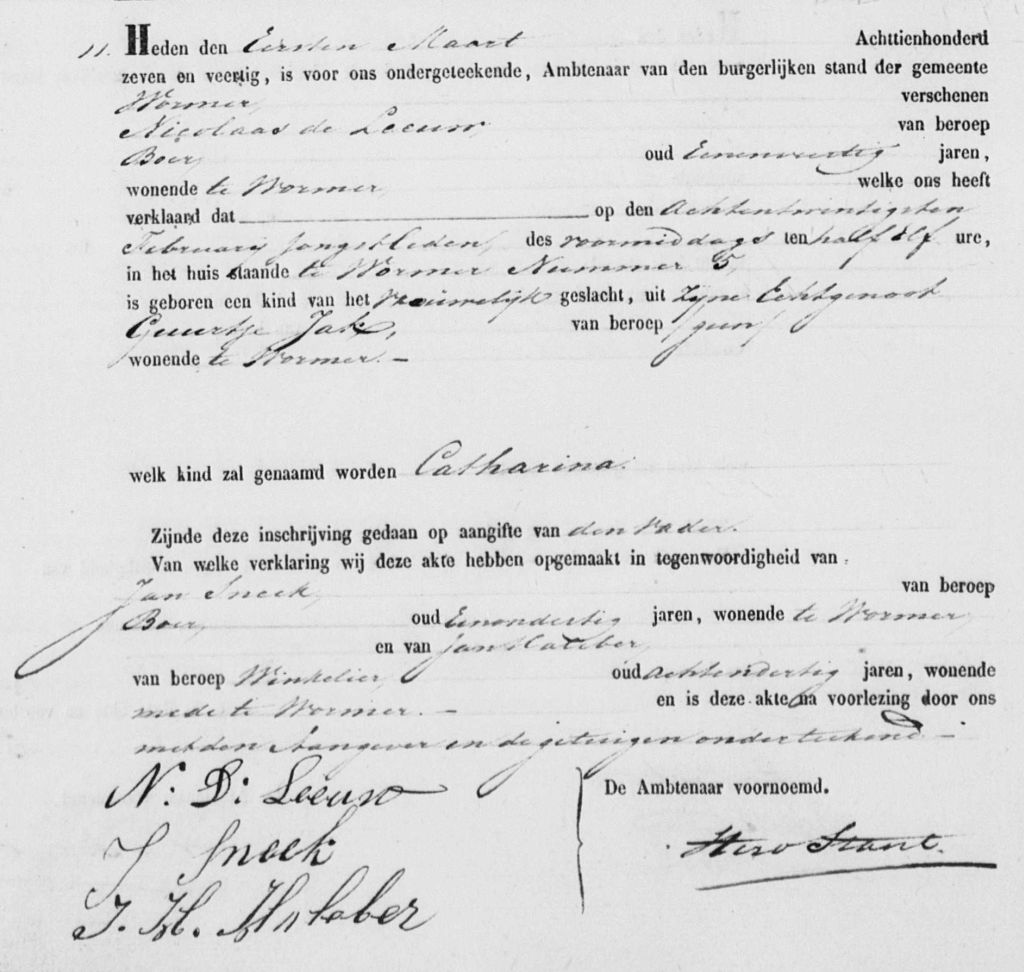 11. Heden den Eersten Maart Achttienhonderd
zeven en veertig, is voor ons ondergeteekende, Ambtenaar van den burgerlijken stand der gemeente
Wormer, verschenen
Nicolaas de Leeuw, van beroep
Boer, oud Eenenveertig jaren,
wonende te Wormer, welke ons heeft
verklaard dat op den Achtentwintigsten
February jongstleden, des voormiddags ten half Elf ure,
in het huis staande te Wormer Nummer 5,
is geboren een kind van het Vrouwelijk geslacht, uit Zyne Echtgenoot
Guurtje Jak, van beroep /geen/
wonende te Wormer. –
welk kind zal genaamd worden Catharina.
Zijnde deze inschrijving gedaan op aangifte van den Vader.
Van welke verklaring wij deze akte hebben opgemaakt in tegenwoordigheid van
Jan Sneek, van beroep
Boer, oud Eenendertig jaren, wonende te Wormer,
en van Jan
van beroep Winkelier, oud Achtendertig jaren, wonende
mede te Wormer. – en is deze akte na voorlezing door ons
met den Aangever en de getuigen onderteekend. –
N: D: Leeuw De Ambtenaar voornoemd.
J Sneek
J. H.